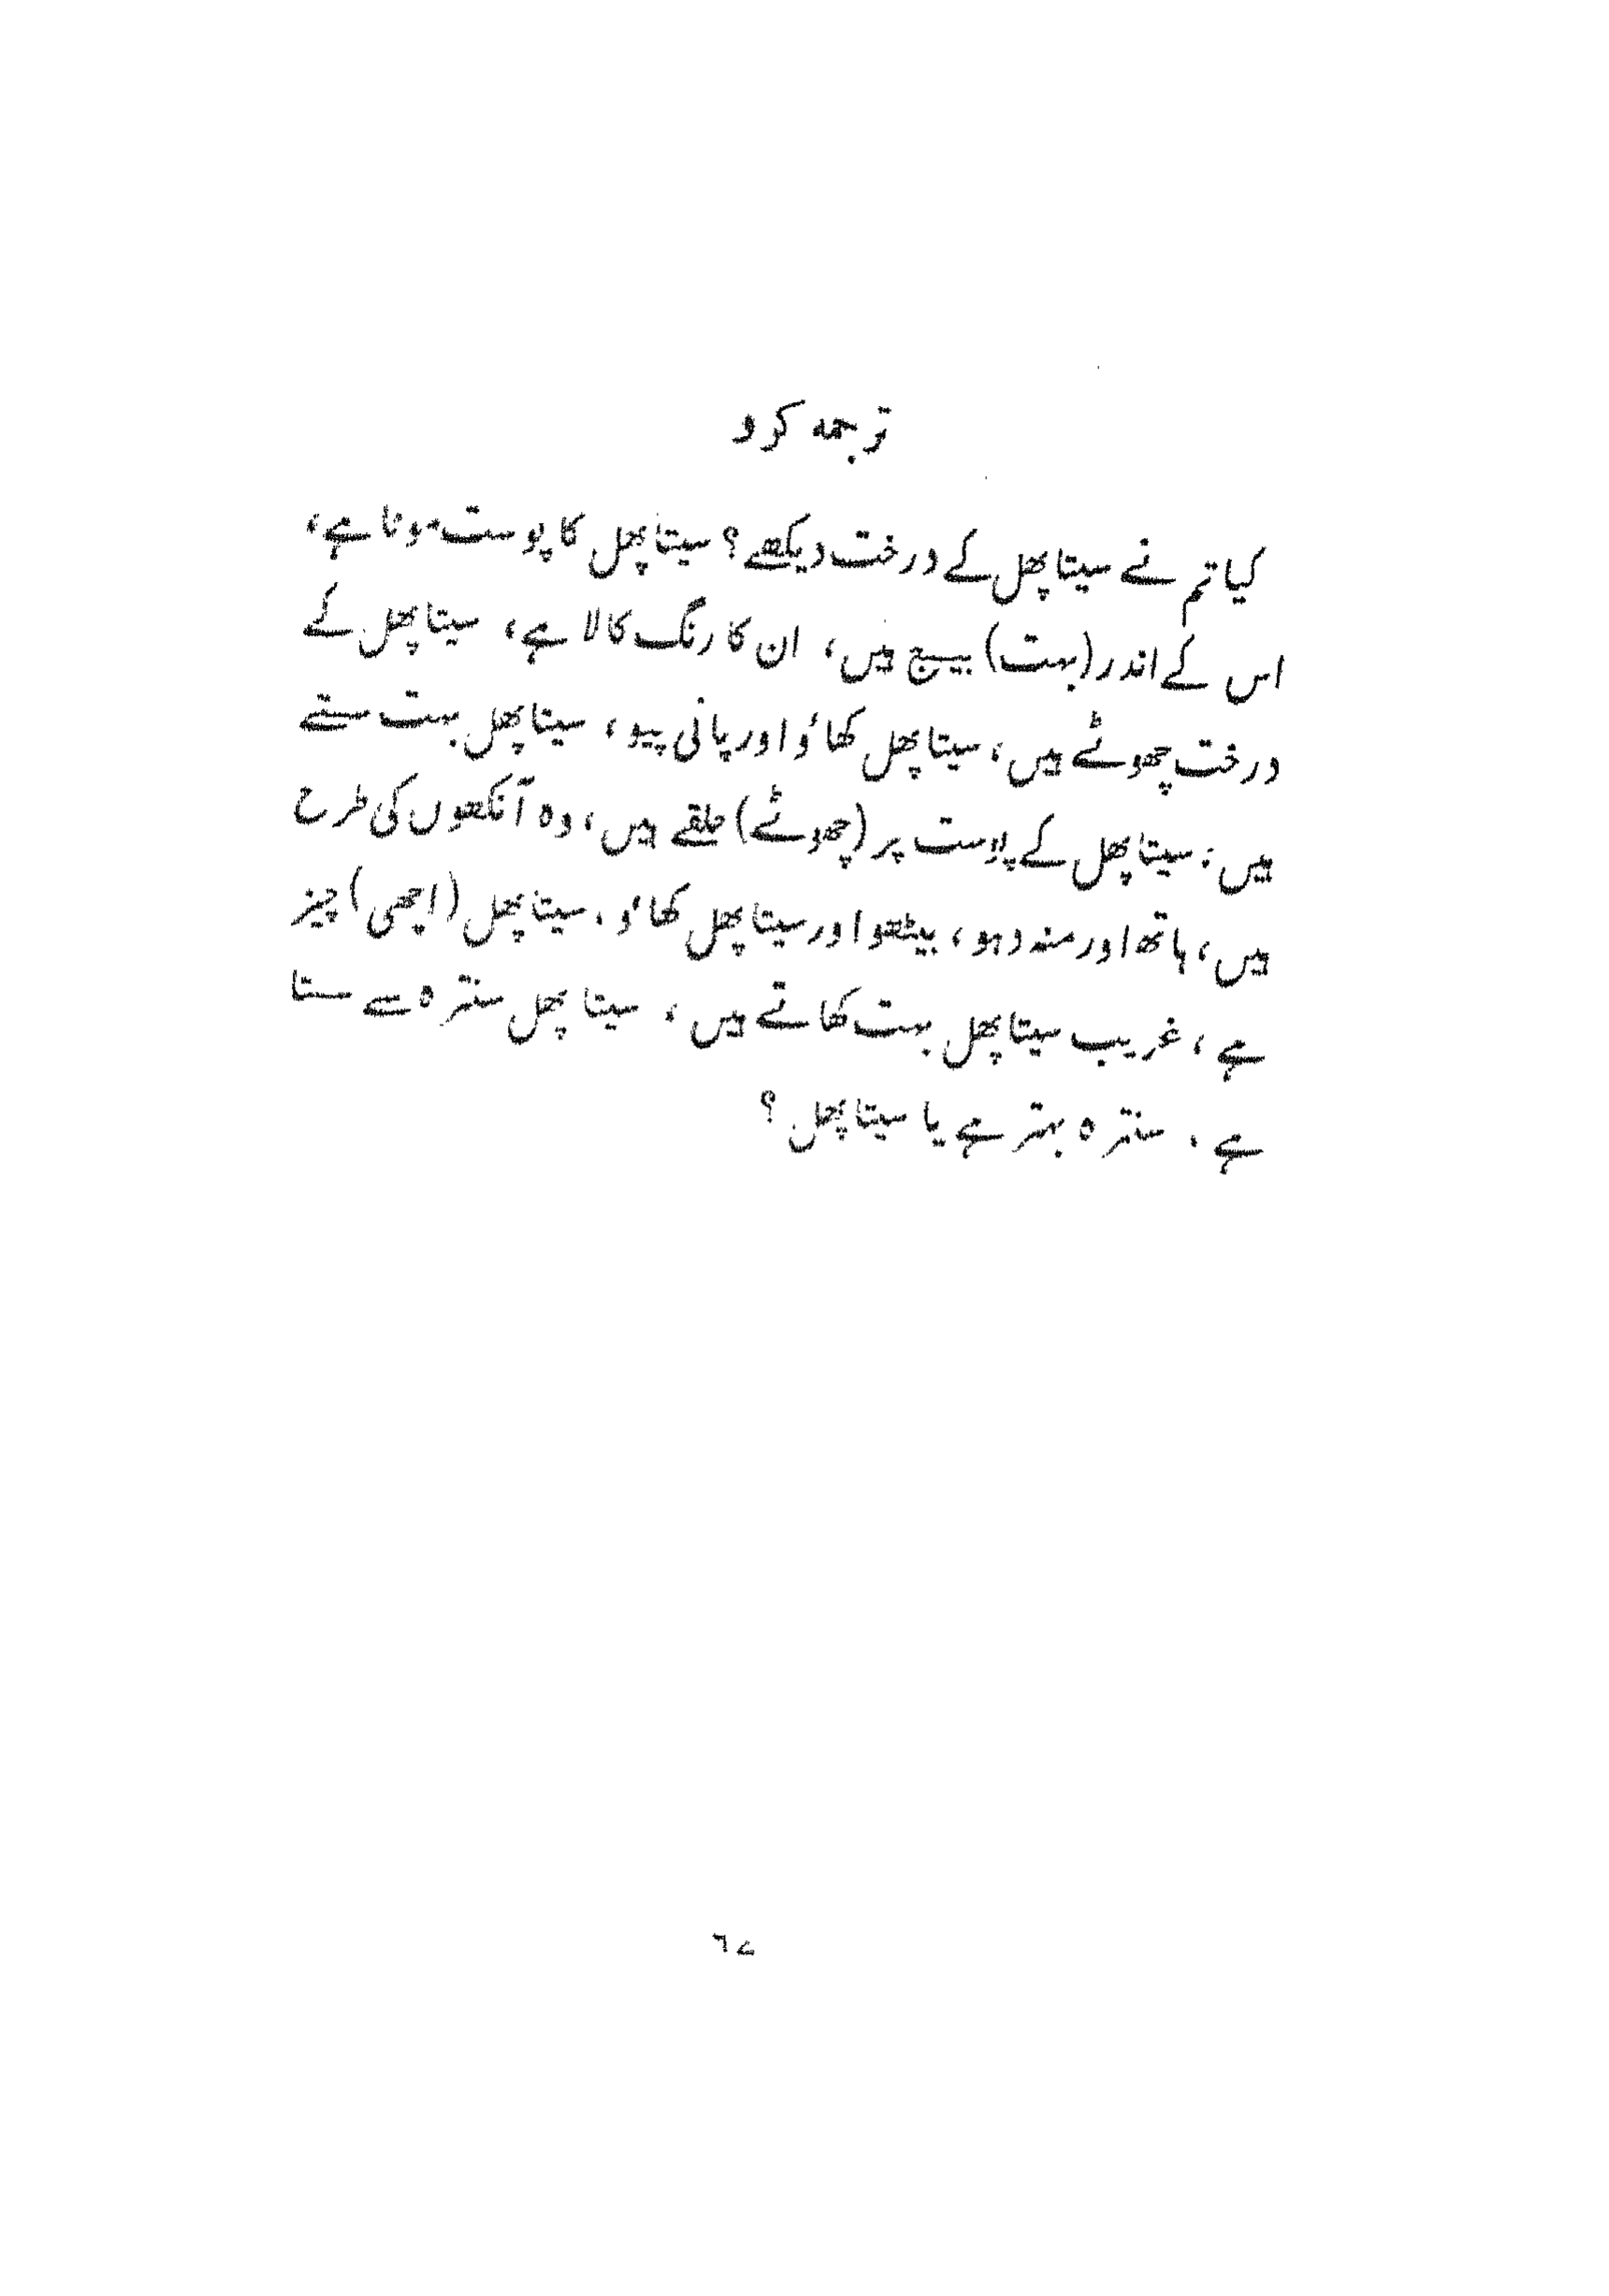 ترجمہ کرو
کیا تم نے سیتا پھل کے درخت دیکھے؟ سیتا پھل کا پوست موٹا ہے،
اس کے اندر (بہت) بیج ہیں، ان کا رنگ کالا ہے، سیتا پھل کے
درخت چھوٹے ہیں، سیتا پھل کھاؤ اور پانی پیو، سیتا پھل بہت ستے
ہیں؛ سیتا پھل کے پوست پر (چھوٹے) حلقے ہیں، وہ آنکھوں کی طرح
ہیں، ہاتھ اور منہ دہو، بیٹھو اور سیتا پھل کھاؤ، سیتا پھل (اچھی) چیز
ہے، غریب سیتا پھل بہت کھاتے ہیں، سیتا پھل سنترہ سے ستا
ہے، سنترہ بہتر ہے یا سیتا پھل؟
٦٧